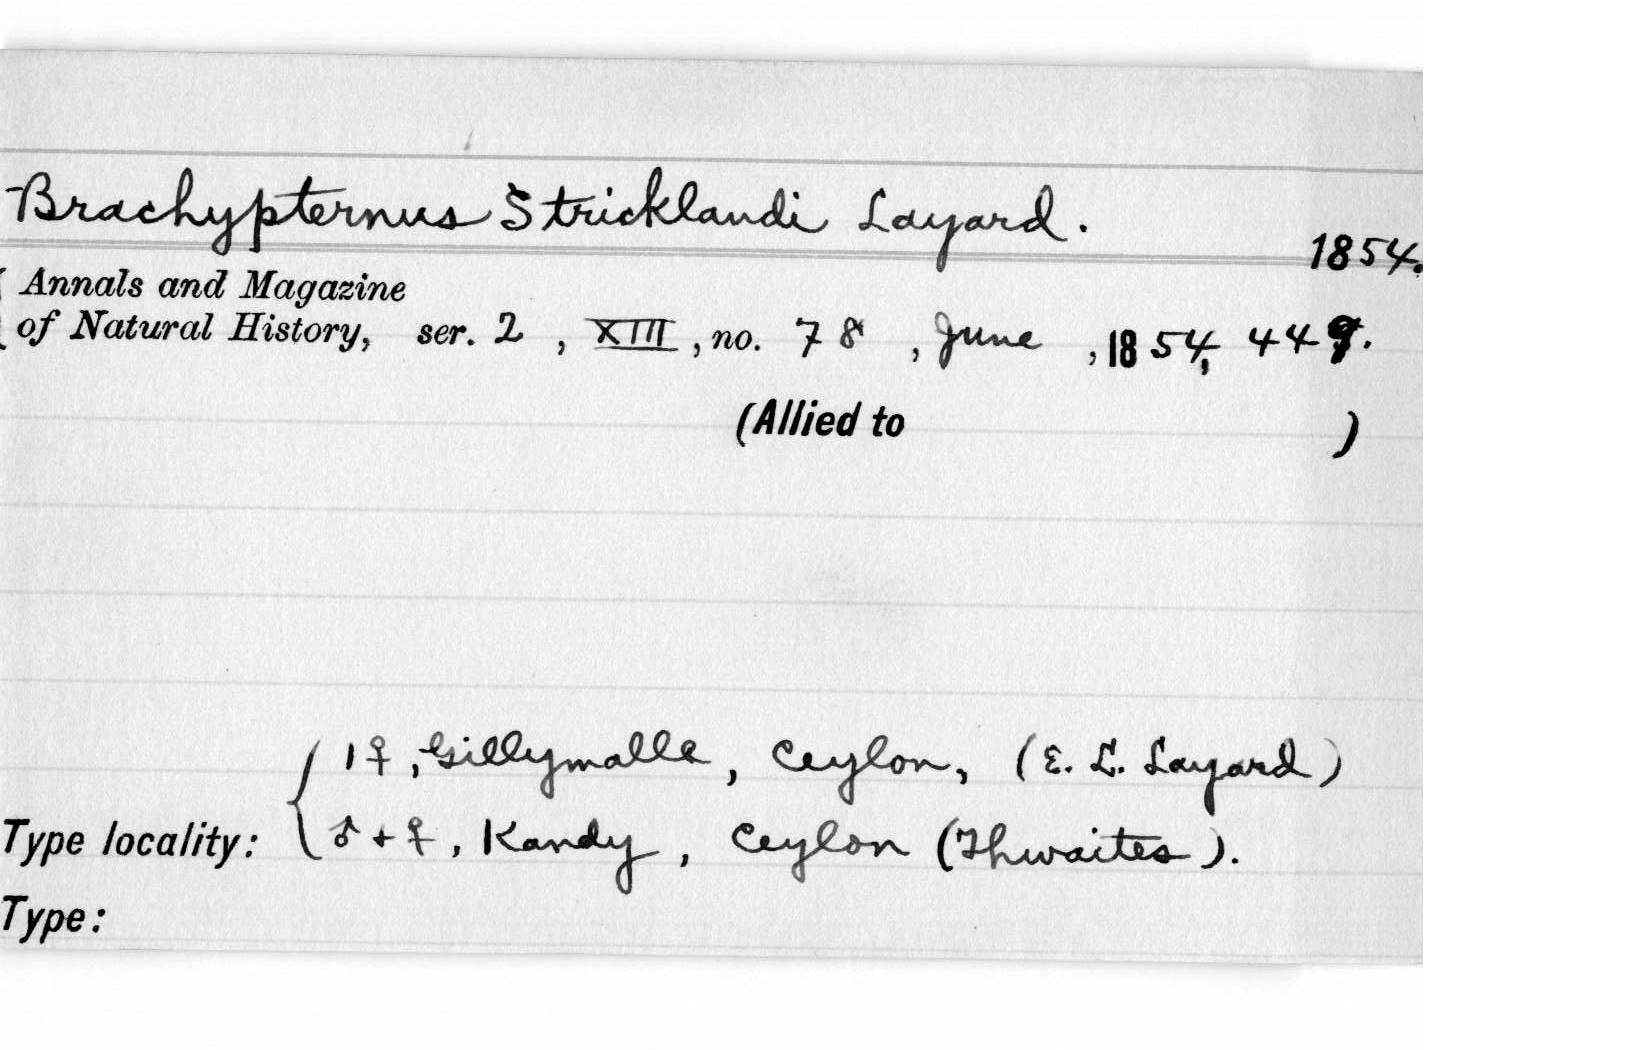 Brachypternus Stricklandi Layard.
1854.
Annals and Magazine
of Natural History, ser. 2, XIII, no. 78, June, 1854, 449.
(Allied to )
1♀, Gillymalle, Ceylon, (E. L. Layard)
Type locality: ♂ + ♀, Kandy, Ceylon (Thwaites).
Type: